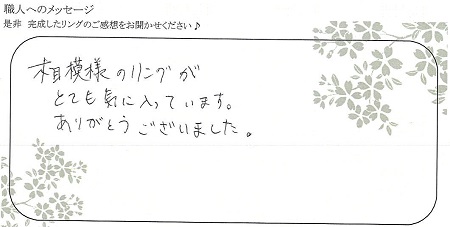 職人へのメッセージ
是非 完成したリングのご感想をお聞かせください♪
相模様のリングが
とても気に入っています。
ありがとうございました。